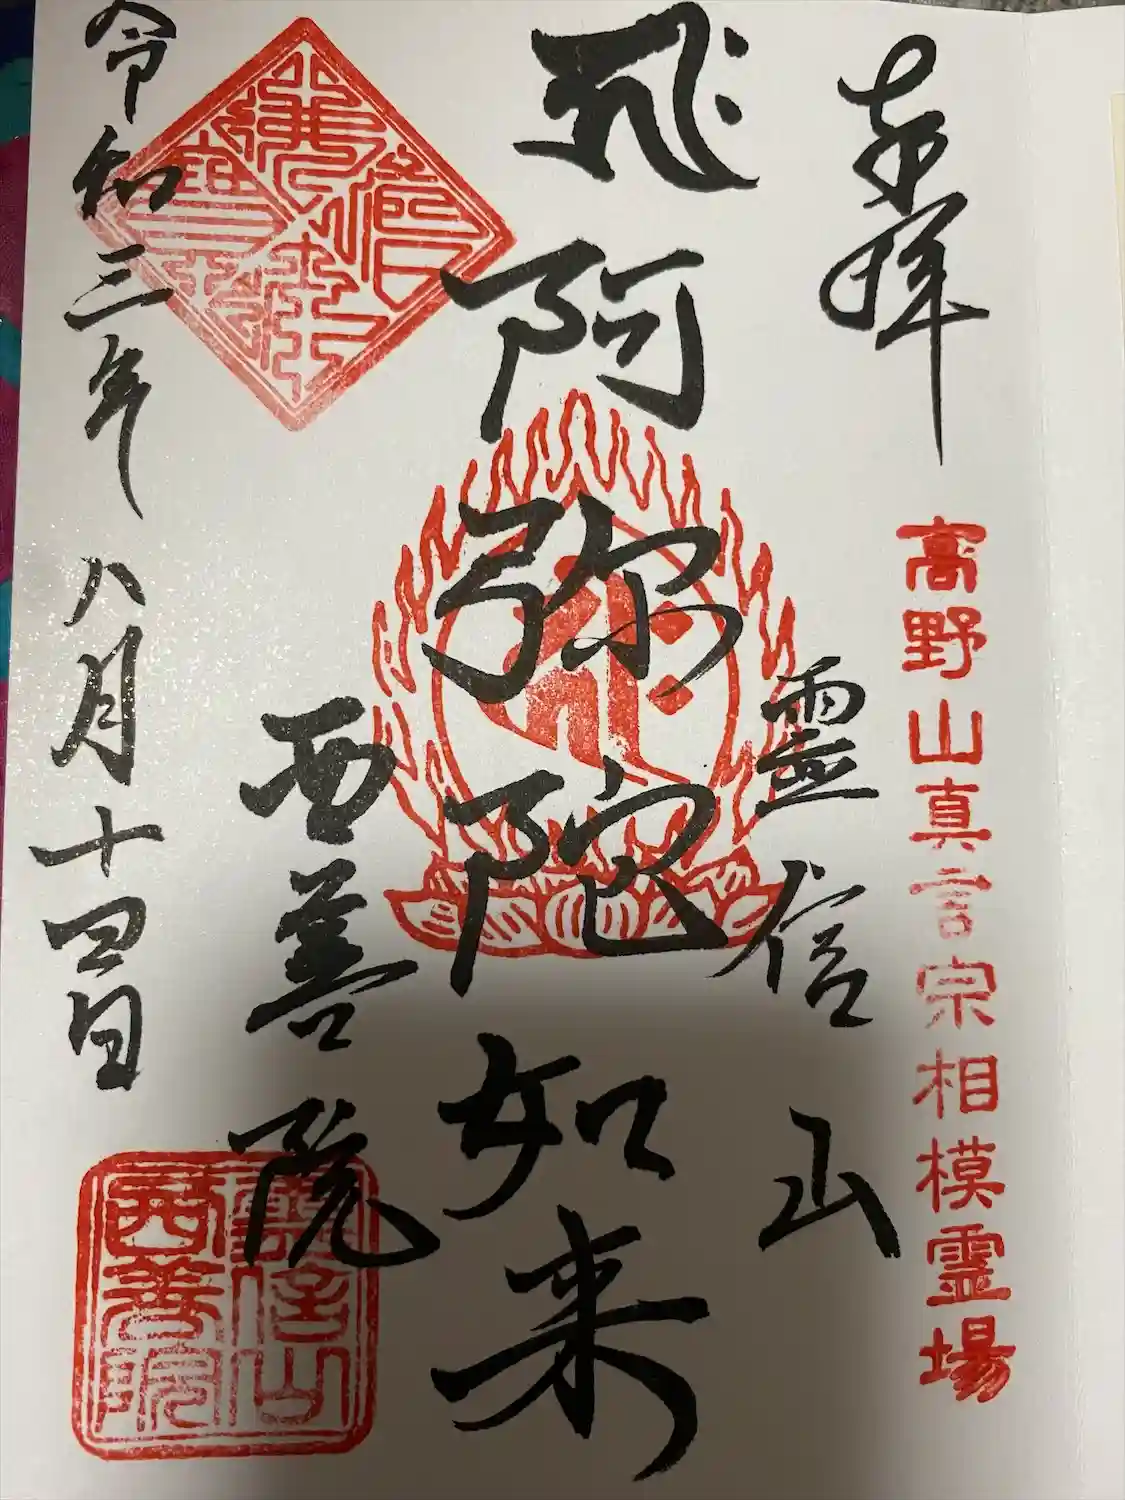 奉拝
高野山真言宗相模霊場
霊信山
阿弥陀如来
西善院
令和三年八月十四日
霊信山
西善院